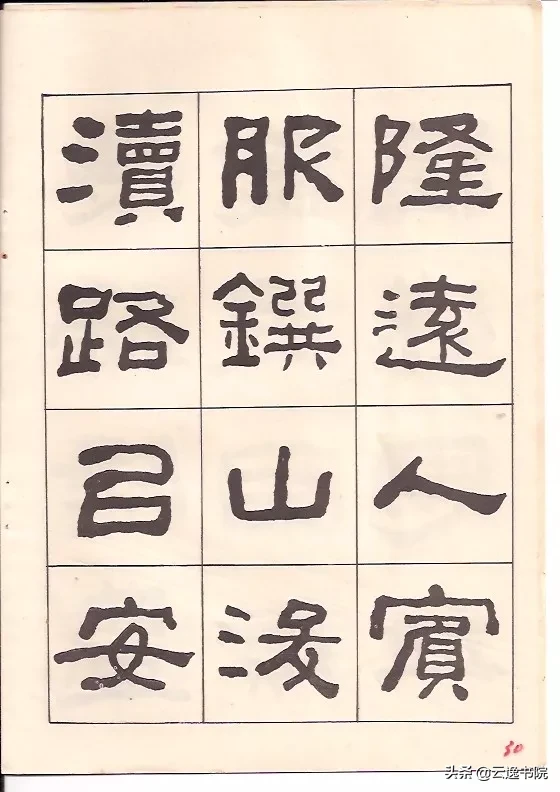 隆遠人賓
服鐉山浚
瀆路㠯安
头条 @云逸书院